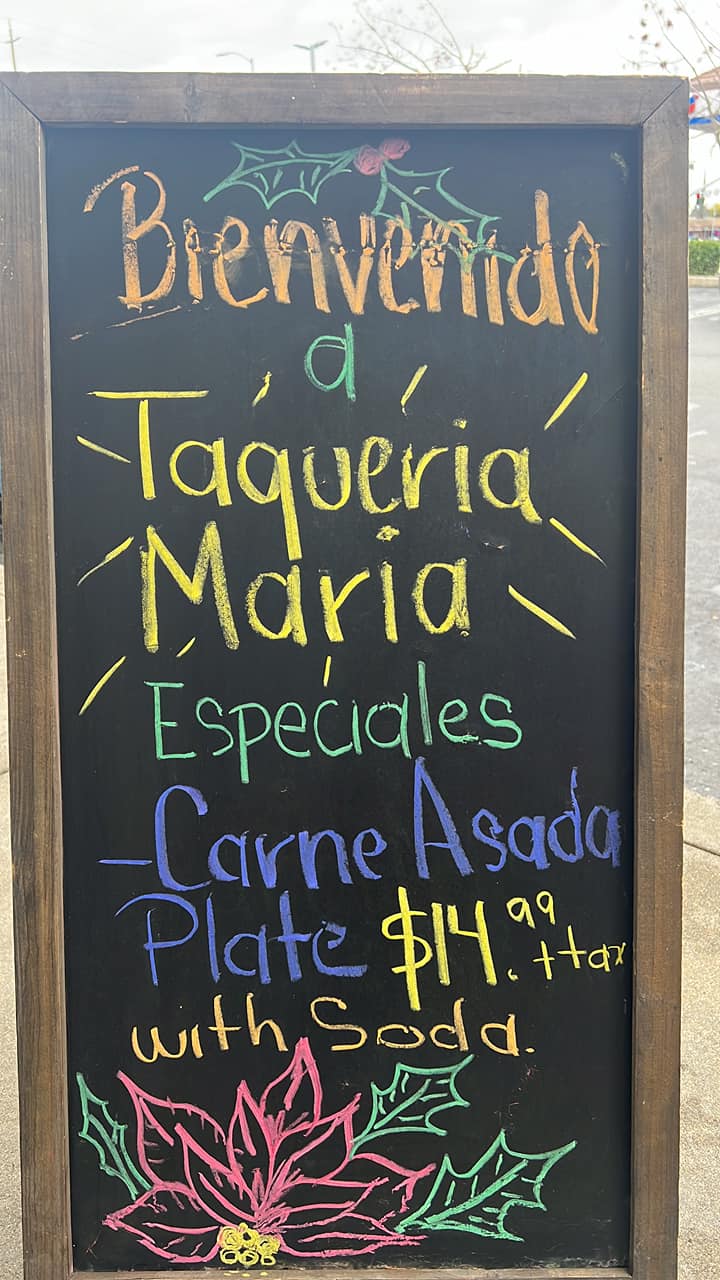 Bienvenido
a
Taqueria
Maria
Especiales
-Carne Asada
Plate $14.99 +tax
with Soda.